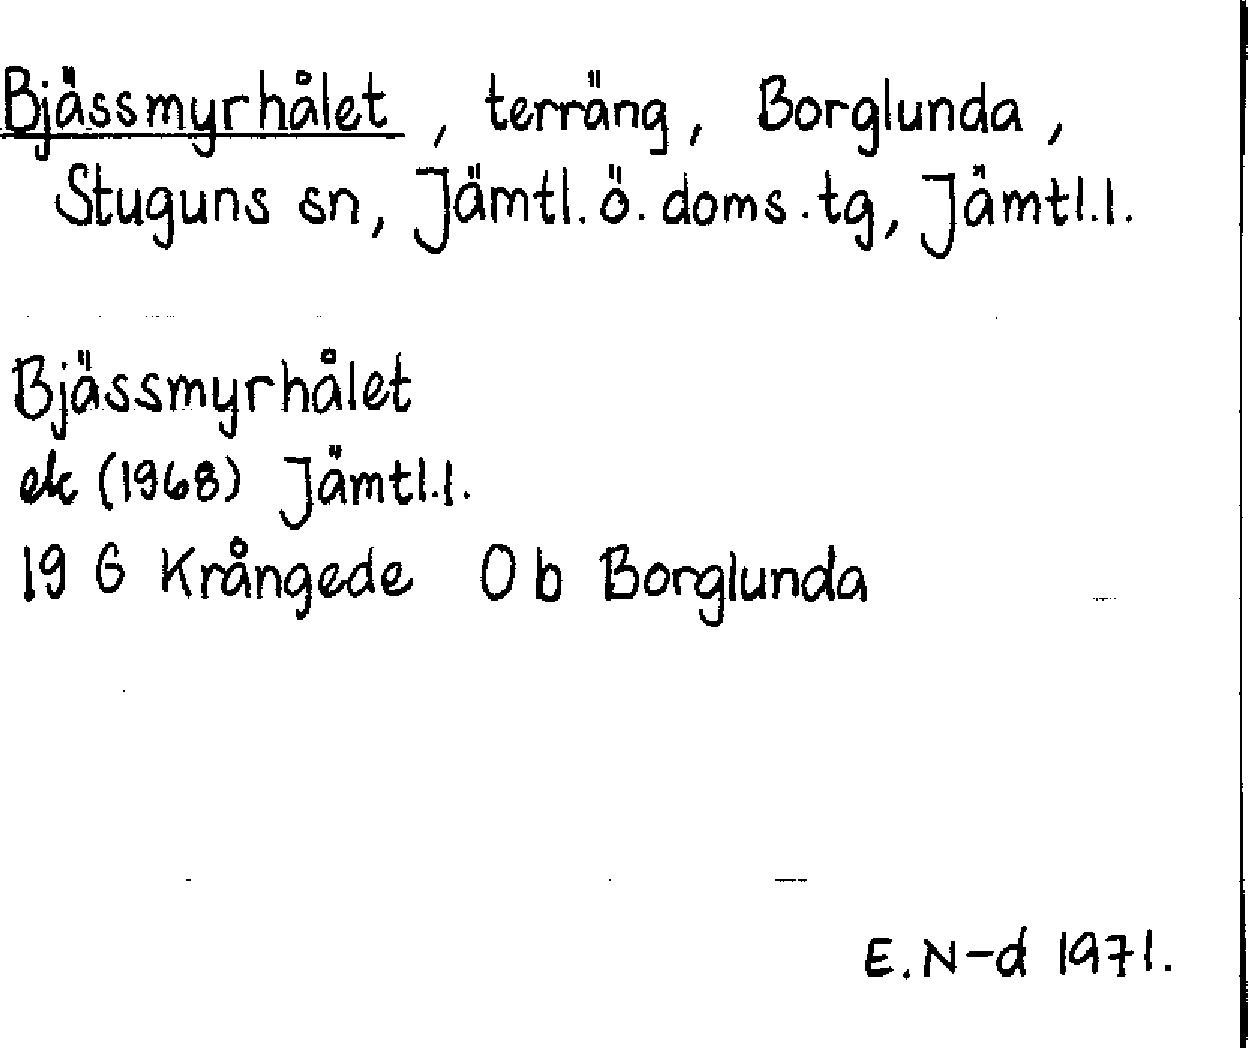 Bjässmyrhålet, terräng, Borglunda,
Stuguns sn, Jämtl. ö. doms. tg, Jämtl.l.
Bjässmyrhålet
ek (1968) Jämtl.l.
19 G Krångede 0 b Borglunda
E. N-d 1971.